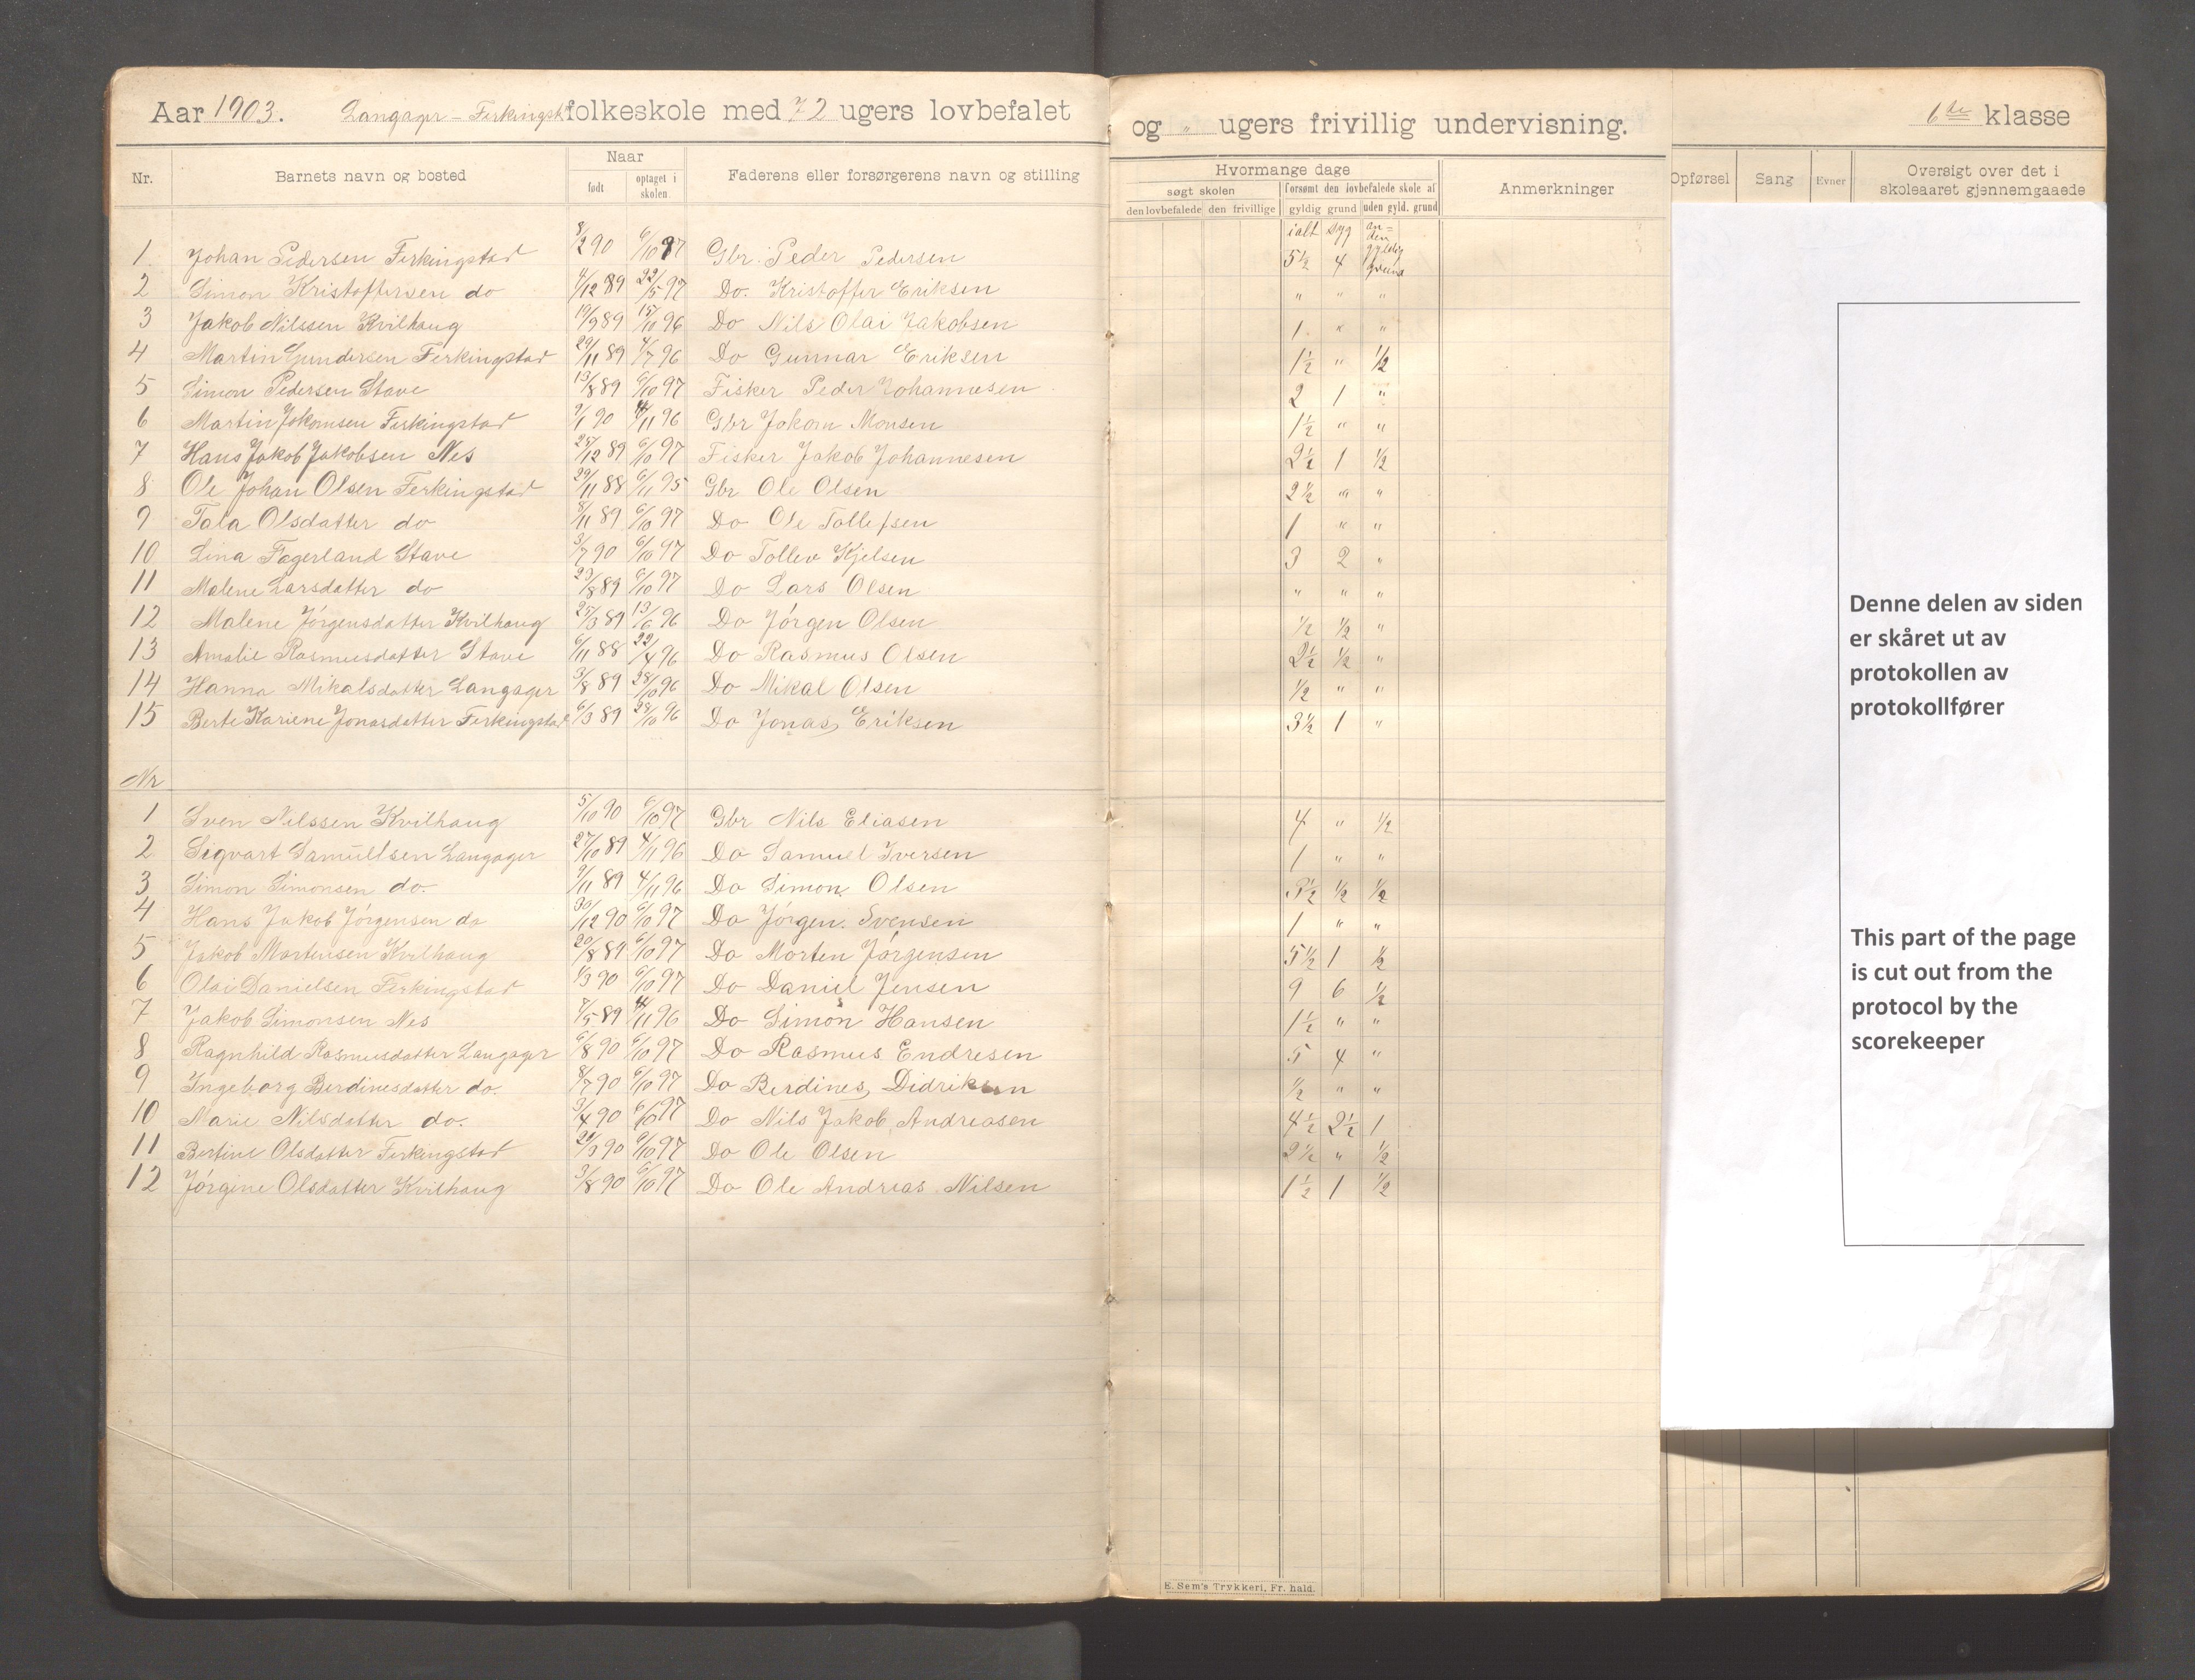 Aar 1903. Langager - Ferkingst. folkeskole med 72 ugers lovbefalet og " ugers frivillig undervisning. 6te klasse
Nr. Barnets navn og bosted Naar Faderens eller forsørgerens navn og stilling Hvormange dage Anmerkninger Opførsel Sang Evner Oversigt over det i
født optaget i skolen. søgt skolen forsømt den lovbefalede skole af skoleaaret gjennemgaaede
den lovbefalede den frivillige gyldig grund uden gyld. grund
ialt syg anden gyldig grund
1 Johan Pedersen Ferkingstad 8/2 90 6/10 97 Gbr. Peder Pedersen 5½ 4
2 Simon Kristoffersen do 4/12 89 22/5 97 Do. Kristoffer Eriksen " " "
3 Jakob Nilssen Kvilhaug 19/9 89 15/10 96 Do Nils Olai Jakobsen 1 " "
4 Martin Gundersen Ferkingstad 29/11 89 4/7 96 Do Gunnar Eriksen 1½ " ½
5 Simon Pedersen Stave 13/8 89 6/10 97 Fisker Peder Johannesen 2 1 "
6 Martin Jakomsen Ferkingstad 9/1 90 4/11 96 Gbr Jakom Monsen 1½ " "
7 Hans Jakob Jakobsen Nes 25/12 89 6/10 97 Fisker Jakob Johannesen 2½ 1 ½
8 Ole Johan Olsen Ferkingstad 29/11 88 6/11 95 Gbr Ole Olsen 2½ " "
9 Tala Olsdatter do 8/11 89 6/10 97 Do Ole Tollefsen 1 " "
10 Lina Fagerland Stave 3/7 90 6/10 97 Do Tollev Kjelsen 3 2 "
11 Malene Larsdatter do 23/8 89 6/10 97 Do Lars Olsen " " "
12 Malene Jørgensdatter Kvilhaug 25/3 89 13/6 96 Do Jørgen Olsen ½ ½ "
13 Amalie Rasmusdatter Stave 6/11 88 22/4 96 Do Rasmus Olsen 2½ ½ "
14 Hanna Mikalsdatter Langager 3/8 89 28/10 96 Do Mikal Olsen ½ " "
15 Berte Kariene Jonasdatter Ferkingstad 6/3 89 28/10 96 Do Jonas Eriksen 3½ 1 "
Nr
1 Sven Nilssen Kvilhaug 5/10 90 6/10 97 Gbr Nils Eliasen 4 " ½
2 Sigvart Samuelsen Langager 27/10 89 4/11 96 Do Samuel Iversen 1 " "
3 Simon Simonsen do. 9/11 89 4/11 96 Do Simon Olsen 5½ ½ ½
4 Hans Jakob Jørgensen do 30/12 90 6/10 97 Do Jørgen Svensen 1 " "
5 Jakob Mortensen Kvilhaug 20/8 89 6/10 97 Do Morten Jørgensen 5½ 1 ½
6 Olai Danielsen Ferkingstad 1/3 90 6/10 97 Do Daniel Jensen 9 6 ½
7 Jakob Simonsen Nes 7/5 89 4/11 96 Do Simon Hansen 1½ " "
8 Ragnhild Rasmusdatter Langager 6/8 90 6/10 97 Do Rasmus Endresen 5 4 "
9 Ingeborg Berdinesdatter do. 8/7 90 6/10 97 Do Berdines Didriksen ½ " "
10 Marie Nilsdatter do. 3/4 90 6/10 97 Do Nils Jakob Andreasen 4½ 2½ 1
11 Bertine Olsdatter Ferkingstad 29/3 90 6/10 97 Do Ole Olsen 2½ " ½
12 Jørgine Olsdatter Kvilhaug 3/8 90 6/10 97 Do Ole Andreas Nilsen 1½ 1 ½
E. Sem's Trykkeri, Fr. hald.
Denne delen av siden
er skåret ut av
protokollen av
protokollfører
This part of the page
is cut out from the
protocol by the
scorekeeper